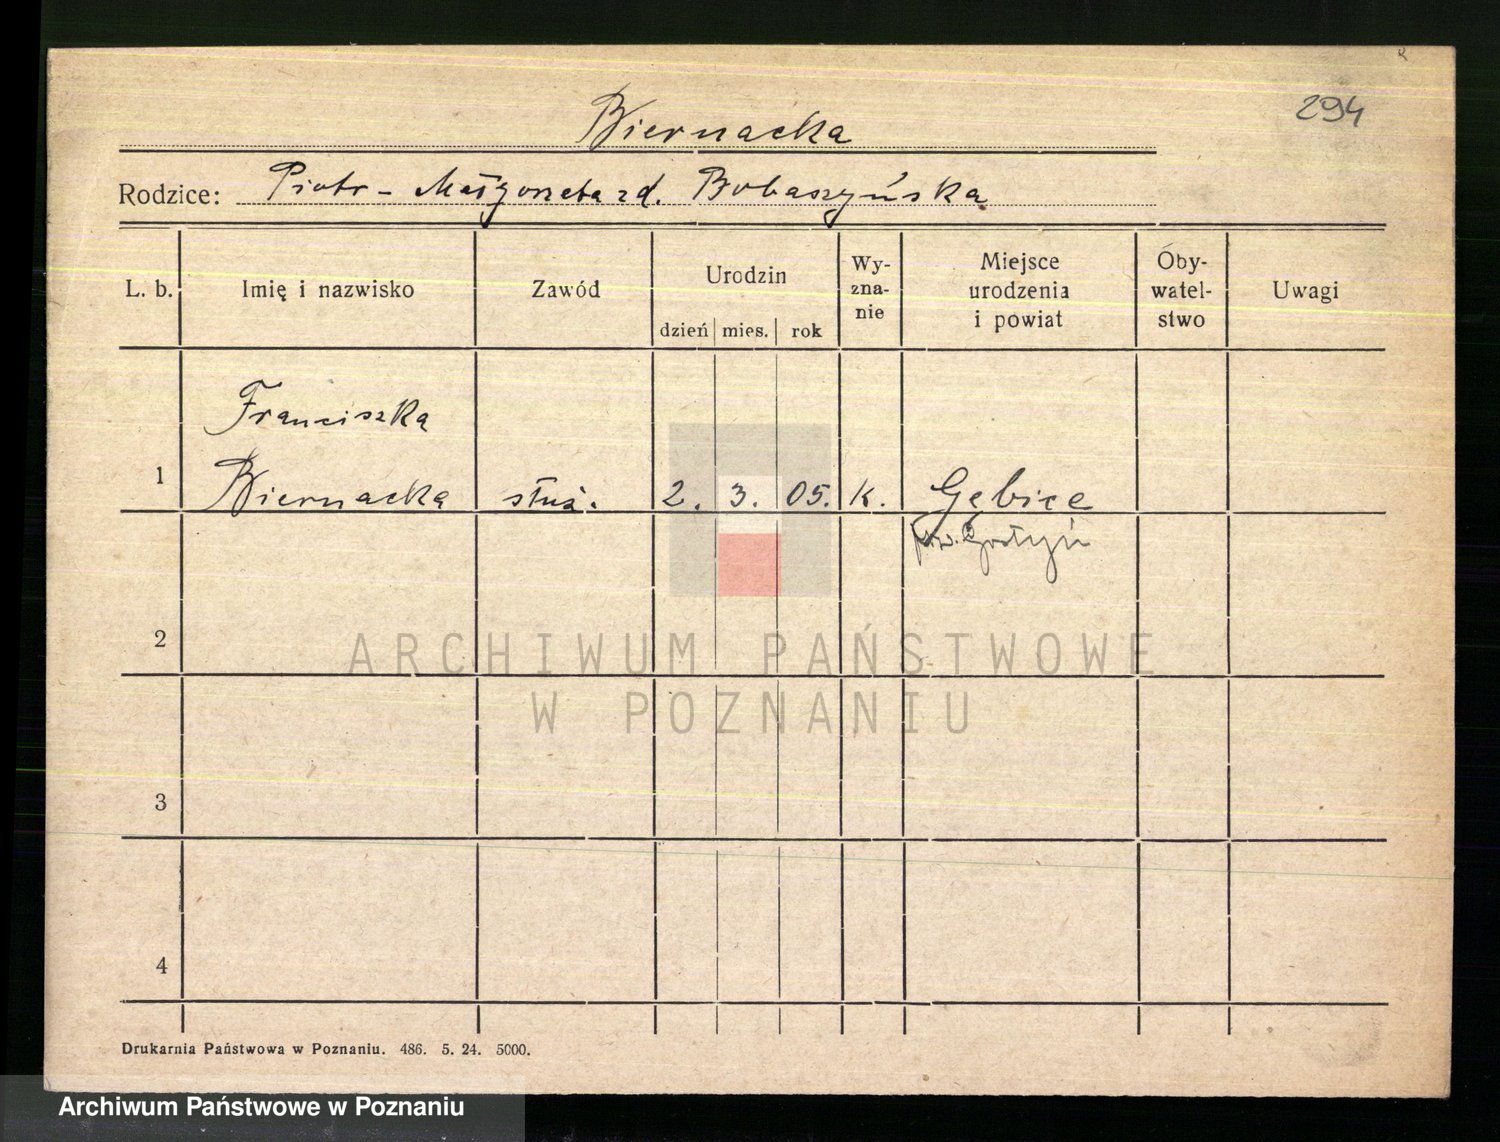 294
Biernacka
Rodzice: Piotr - Małgorzata zd. Bobaszyńska
L. b. Imię i nazwisko Zawód Urodzin dzień mies. rok Wy-zna-nie Miejsce urodzenia i powiat Oby-watel-stwo Uwagi
Franciszka
1 Biernacka służ. 2. 3. 05. K. Gębice
pow. Gostyń
2
ARCHIWUM PAŃSTWOWE
W POZNANIU
3
4
Drukarnia Państwowa w Poznaniu. 486. 5. 24. 5000.
Archiwum Państwowe w Poznaniu